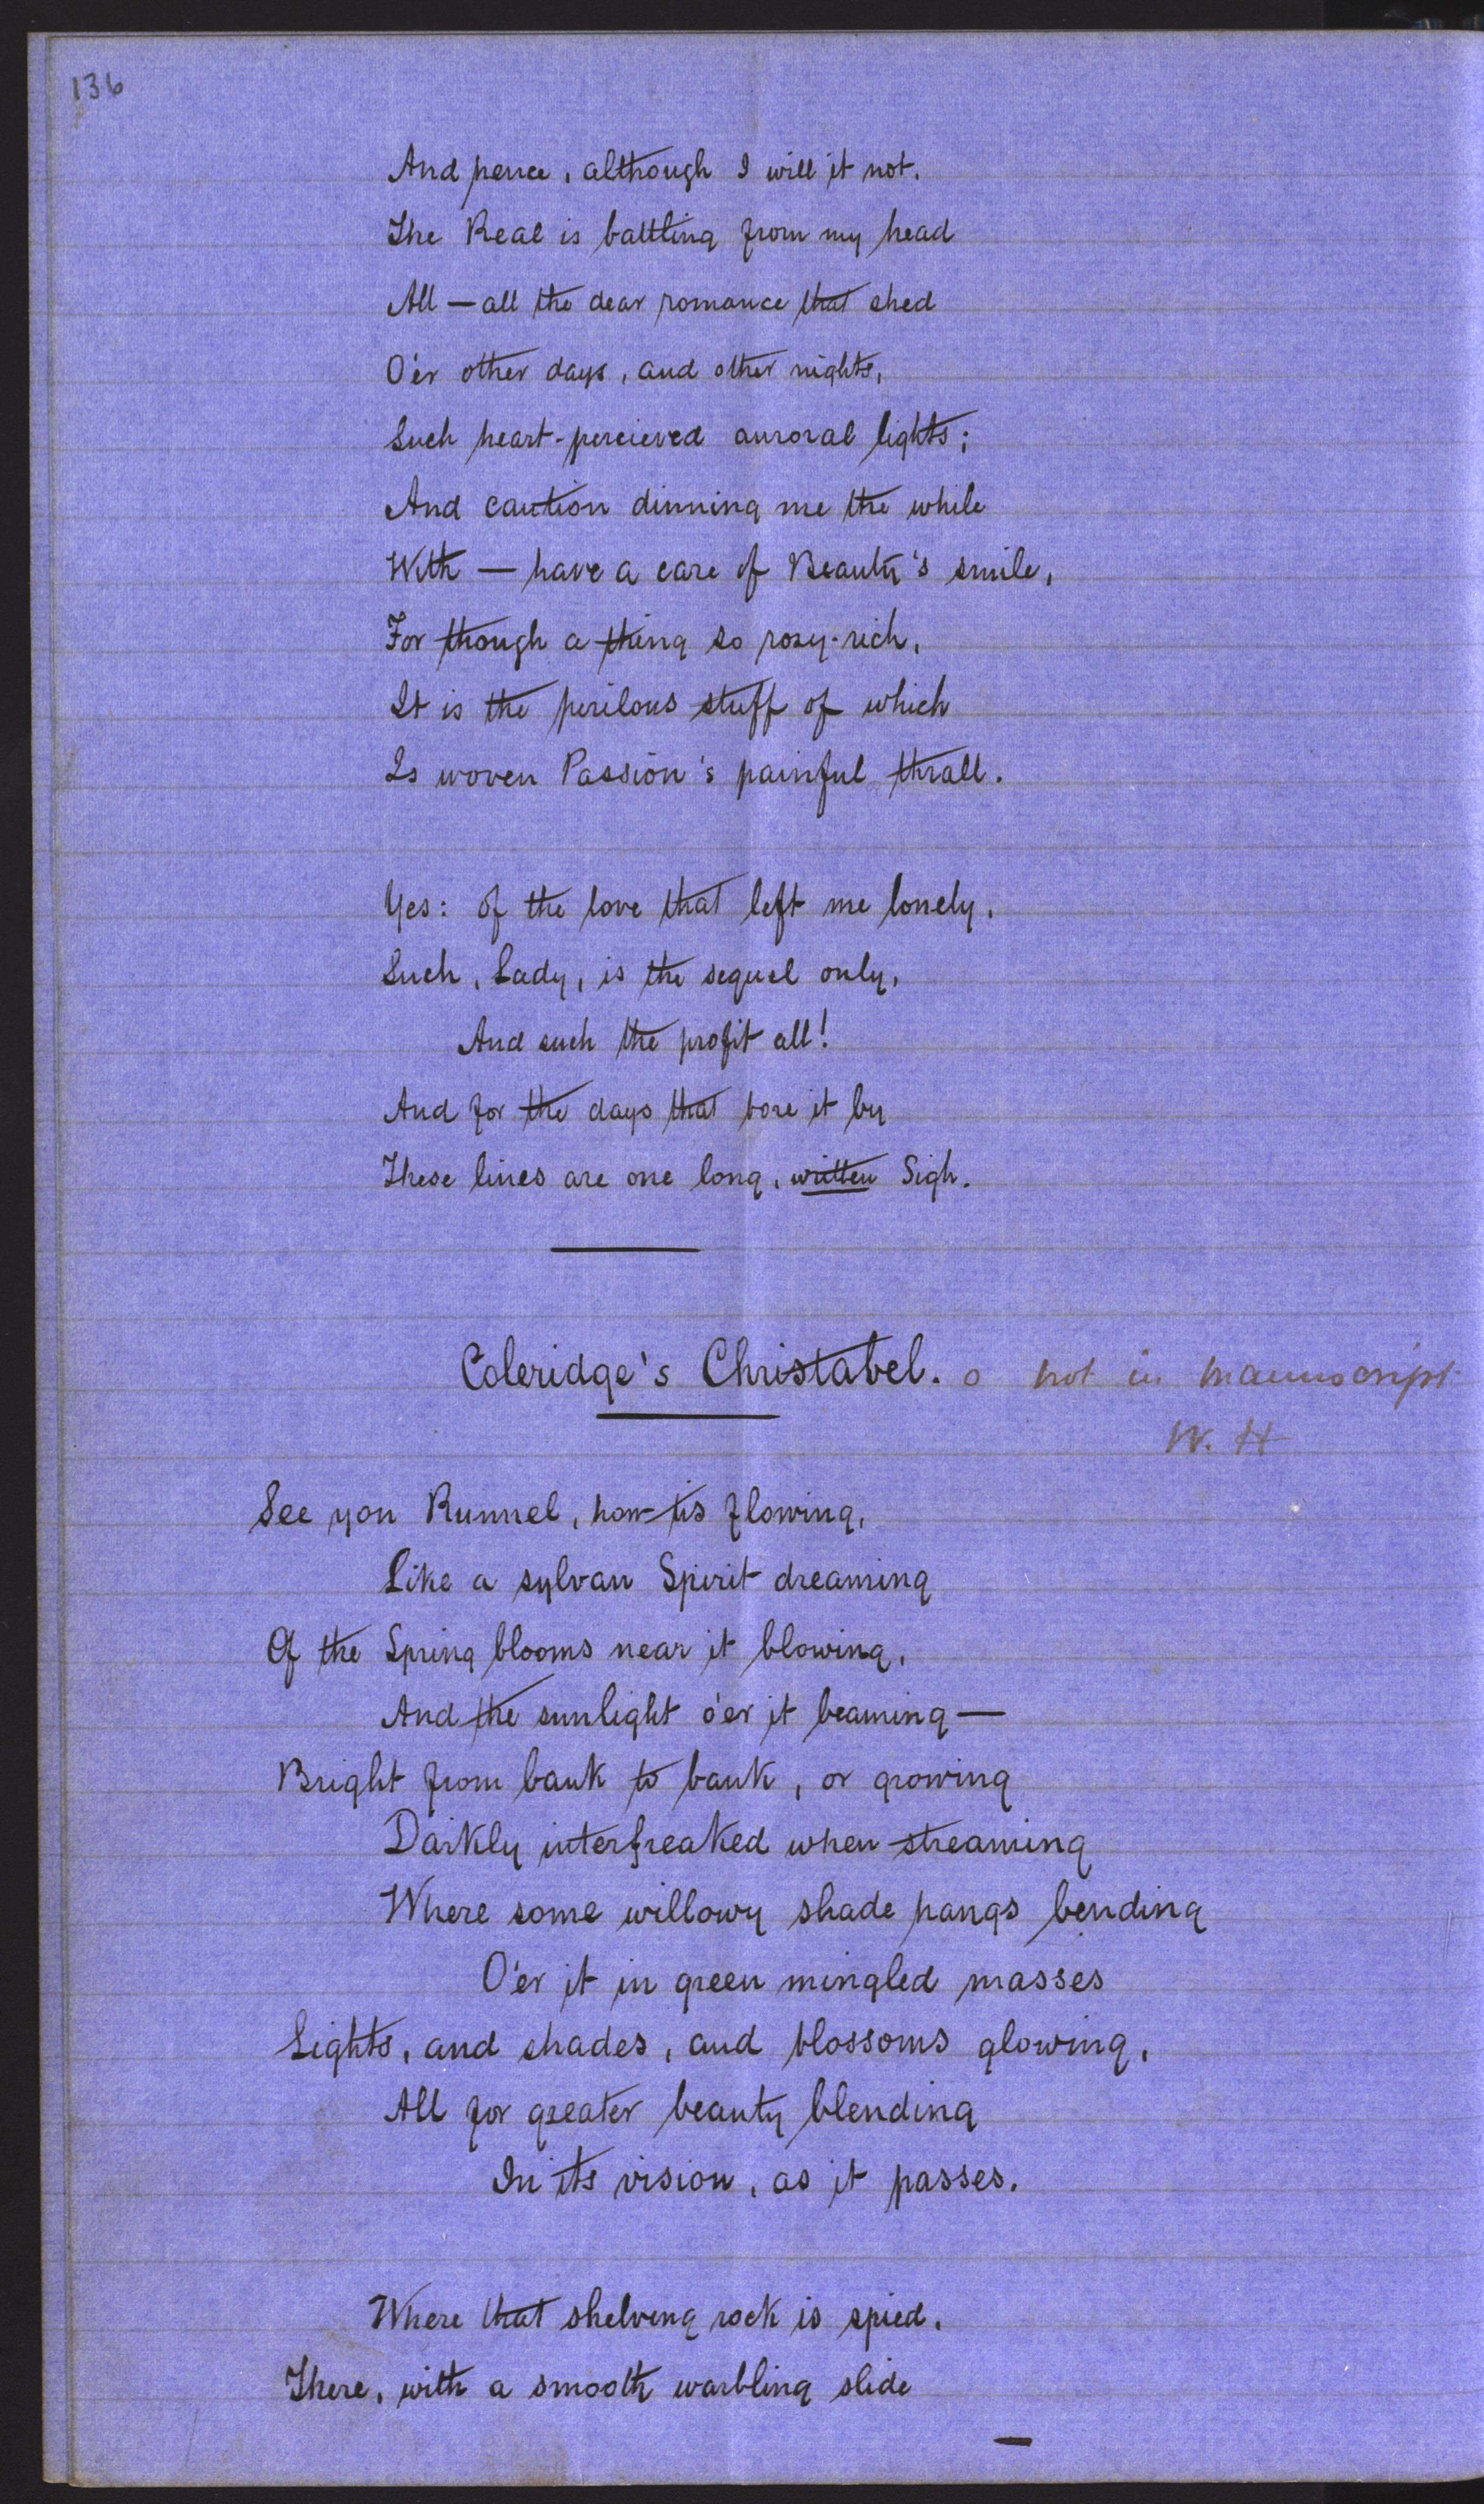 136
And hence, although I will it not.
The Real is battling from my head
All — all the dear romance that shed
O'er other days, and other nights,
Such heart-percieved auroral lights;
And caution dinning me the while
With — have a care of Beauty's smile,
For though a thing so rosy-rich,
It is the perilous stuff of which
Is woven Passion's painful thrall.
Yes: of the love that left me lonely,
Such, Lady, is the sequel only,
And such the profit all!
And for the days that bore it by
These lines are one long, written Sigh.
Coleridge's Christabel. o not in manuscript
W. H
See yon Runnel, how tis flowing,
Like a sylvan Spirit dreaming
Of the Spring blooms near it blowing,
And the sunlight o'er it beaming —
Bright from bank to bank, or growing
Darkly interfreaked when streaming
Where some willowy shade hangs bending
O'er it in green mingled masses
Lights, and shades, and blossoms glowing,
All for greater beauty blending
In its vision, as it passes.
Where that shelving rock is spied,
There, with a smooth warbling slide